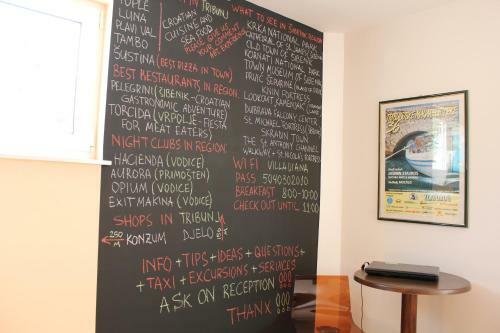 TOPLE
LUNA
PLAVI VAL
TAMBO
ŠUSTINA (BEST PIZZA IN TOWN)
IN TRIBUNJ
CROATIAN
CUISINE AND
SEA FOOD
PLEASE GIVE US
YOUR COMMENT
BEST RESTAURANTS IN REGION
PELEGRINI (ŠIBENIK - CROATIAN
GASTRONOMIC ADVENTURE)
TORCIDA (VRPOLJE - FIESTA
FOR MEAT EATERS)
NIGHT CLUBS IN REGION:
HACIENDA (VODICE)
AURORA (PRIMOŠTEN)
OPIUM (VODICE)
EXIT MAKINA (VODICE)
SHOPS IN TRIBUNJ
250 M KONZUM DJELO
WHAT TO SEE IN ŠIBENIK REGION
KRKA NATIONAL PARK
CATHEDRAL OF ST. JAMES
OLD TOWN OF ŠIBENIK
KORNATI NATIONAL PARK
TOWN MUSEUM OF ŠIBENIK
KNIN FORTRESS
DUBRAVA FALCONRY CENTER
ST. MICHAEL FORTRESS
SKRADIN TOWN
THE ST. ANTHONY CHANNEL
WALKWAY + ST. NICOLA'S FORTRESS
WIFI VILLADIANA
PASS 5040302010
BREAKFAST 8:00-10:00
CHECK OUT UNTIL 11:00
INFO + TIPS + IDEAS + QUESTIONS +
+ TAXI + EXCURSIONS + SERVICES
ASK ON RECEPTION !!!
THANX !!!